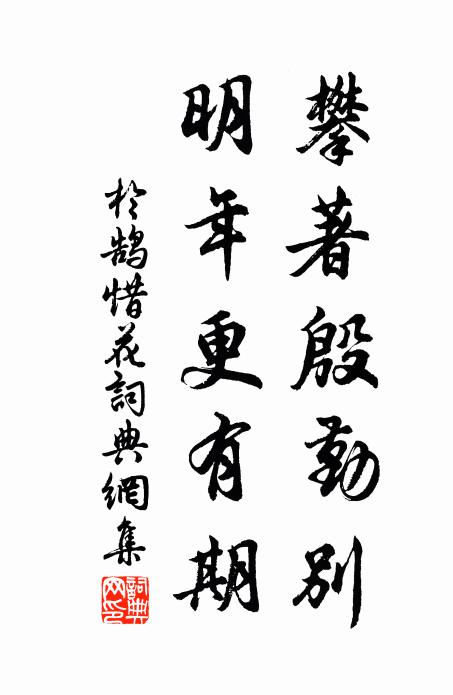 攀著殷勤別
明年更有期
於鵠惜花詞典網集
詞典網印